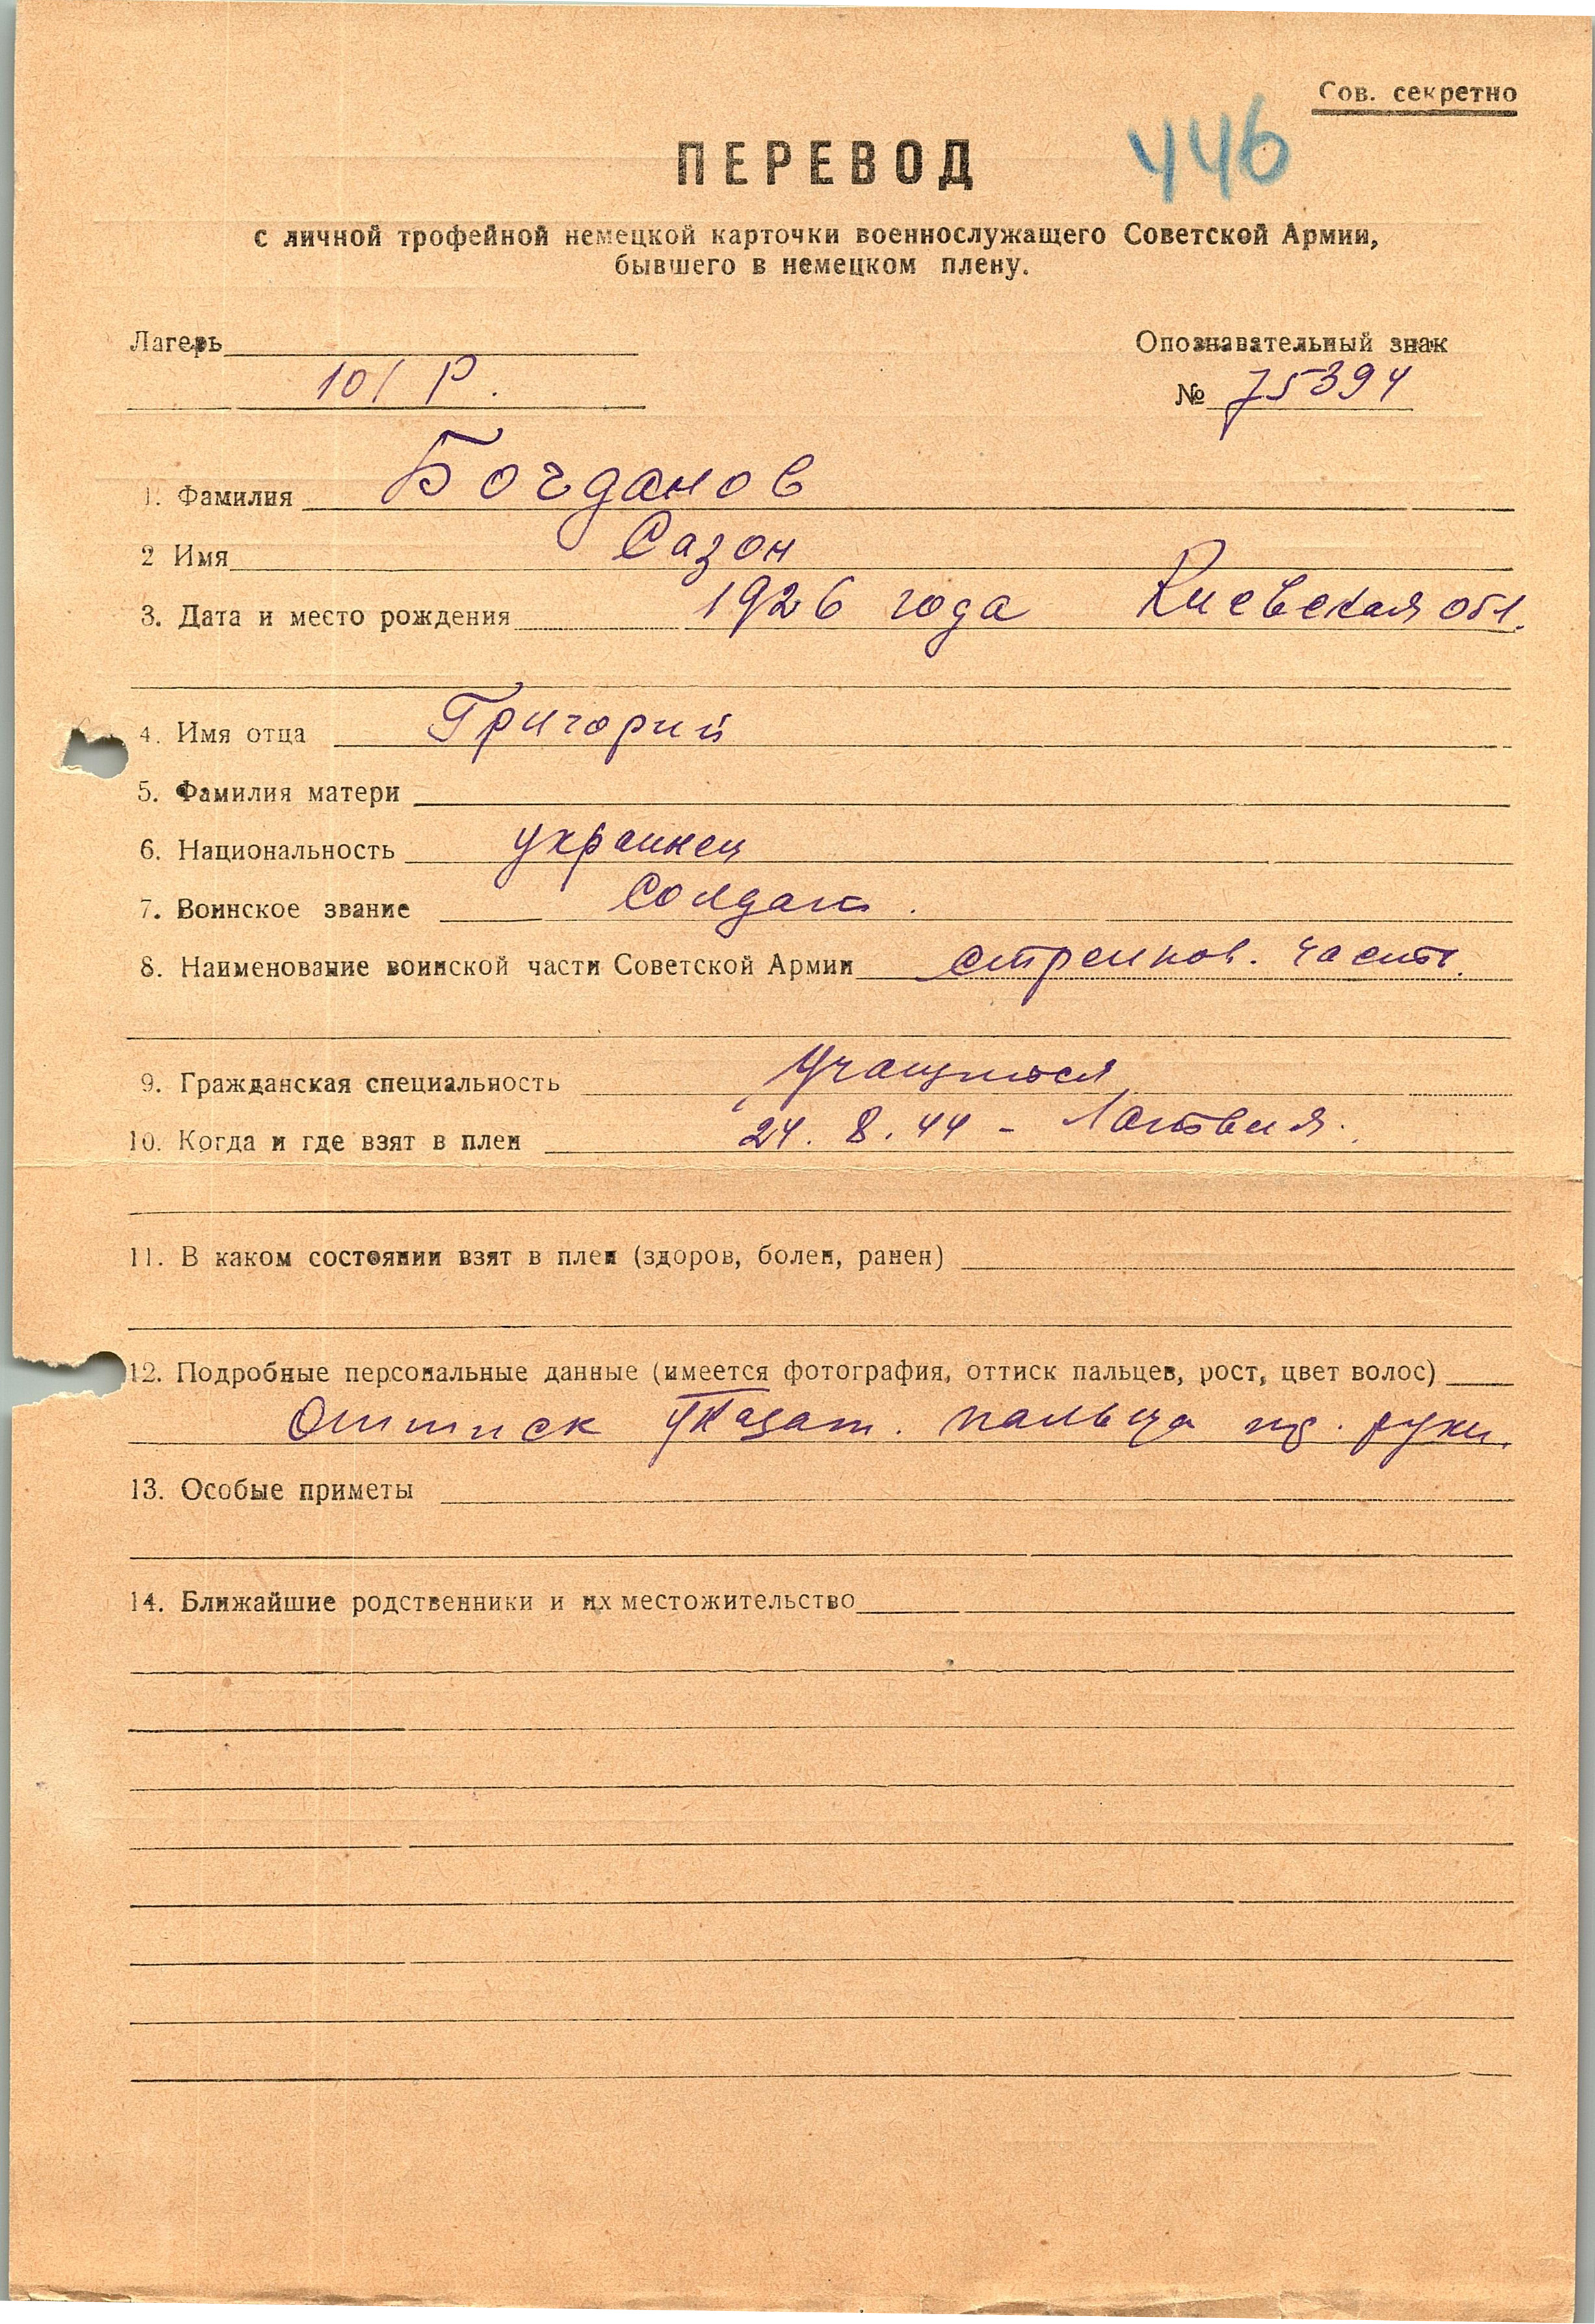 Сов. секретно
446
ПЕРЕВОД
с личной трофейной немецкой карточки военнослужащего Советской Армии,
бывшего в немецком плену.
Лагерь
Опознавательный знак
101 Р.
№ 75394
1. Фамилия Богданов
2 Имя Сазон
3. Дата и место рождения 1926 года Киевская обл.
4. Имя отца Григорий
5. Фамилия матери
6. Национальность украинец
7. Воинское звание Солдат.
8. Наименование воинской части Советской Армии стрелков. часть.
9. Гражданская специальность Учащийся
10. Когда и где взят в плен 24. 8. 44 - Латвия.
11. В каком состоянии взят в плен (здоров, болен, ранен)
12. Подробные персональные данные (имеется фотография, оттиск пальцев, рост, цвет волос)
Оттиск указат. пальца пр. руки.
13. Особые приметы
14. Ближайшие родственники и их местожительство